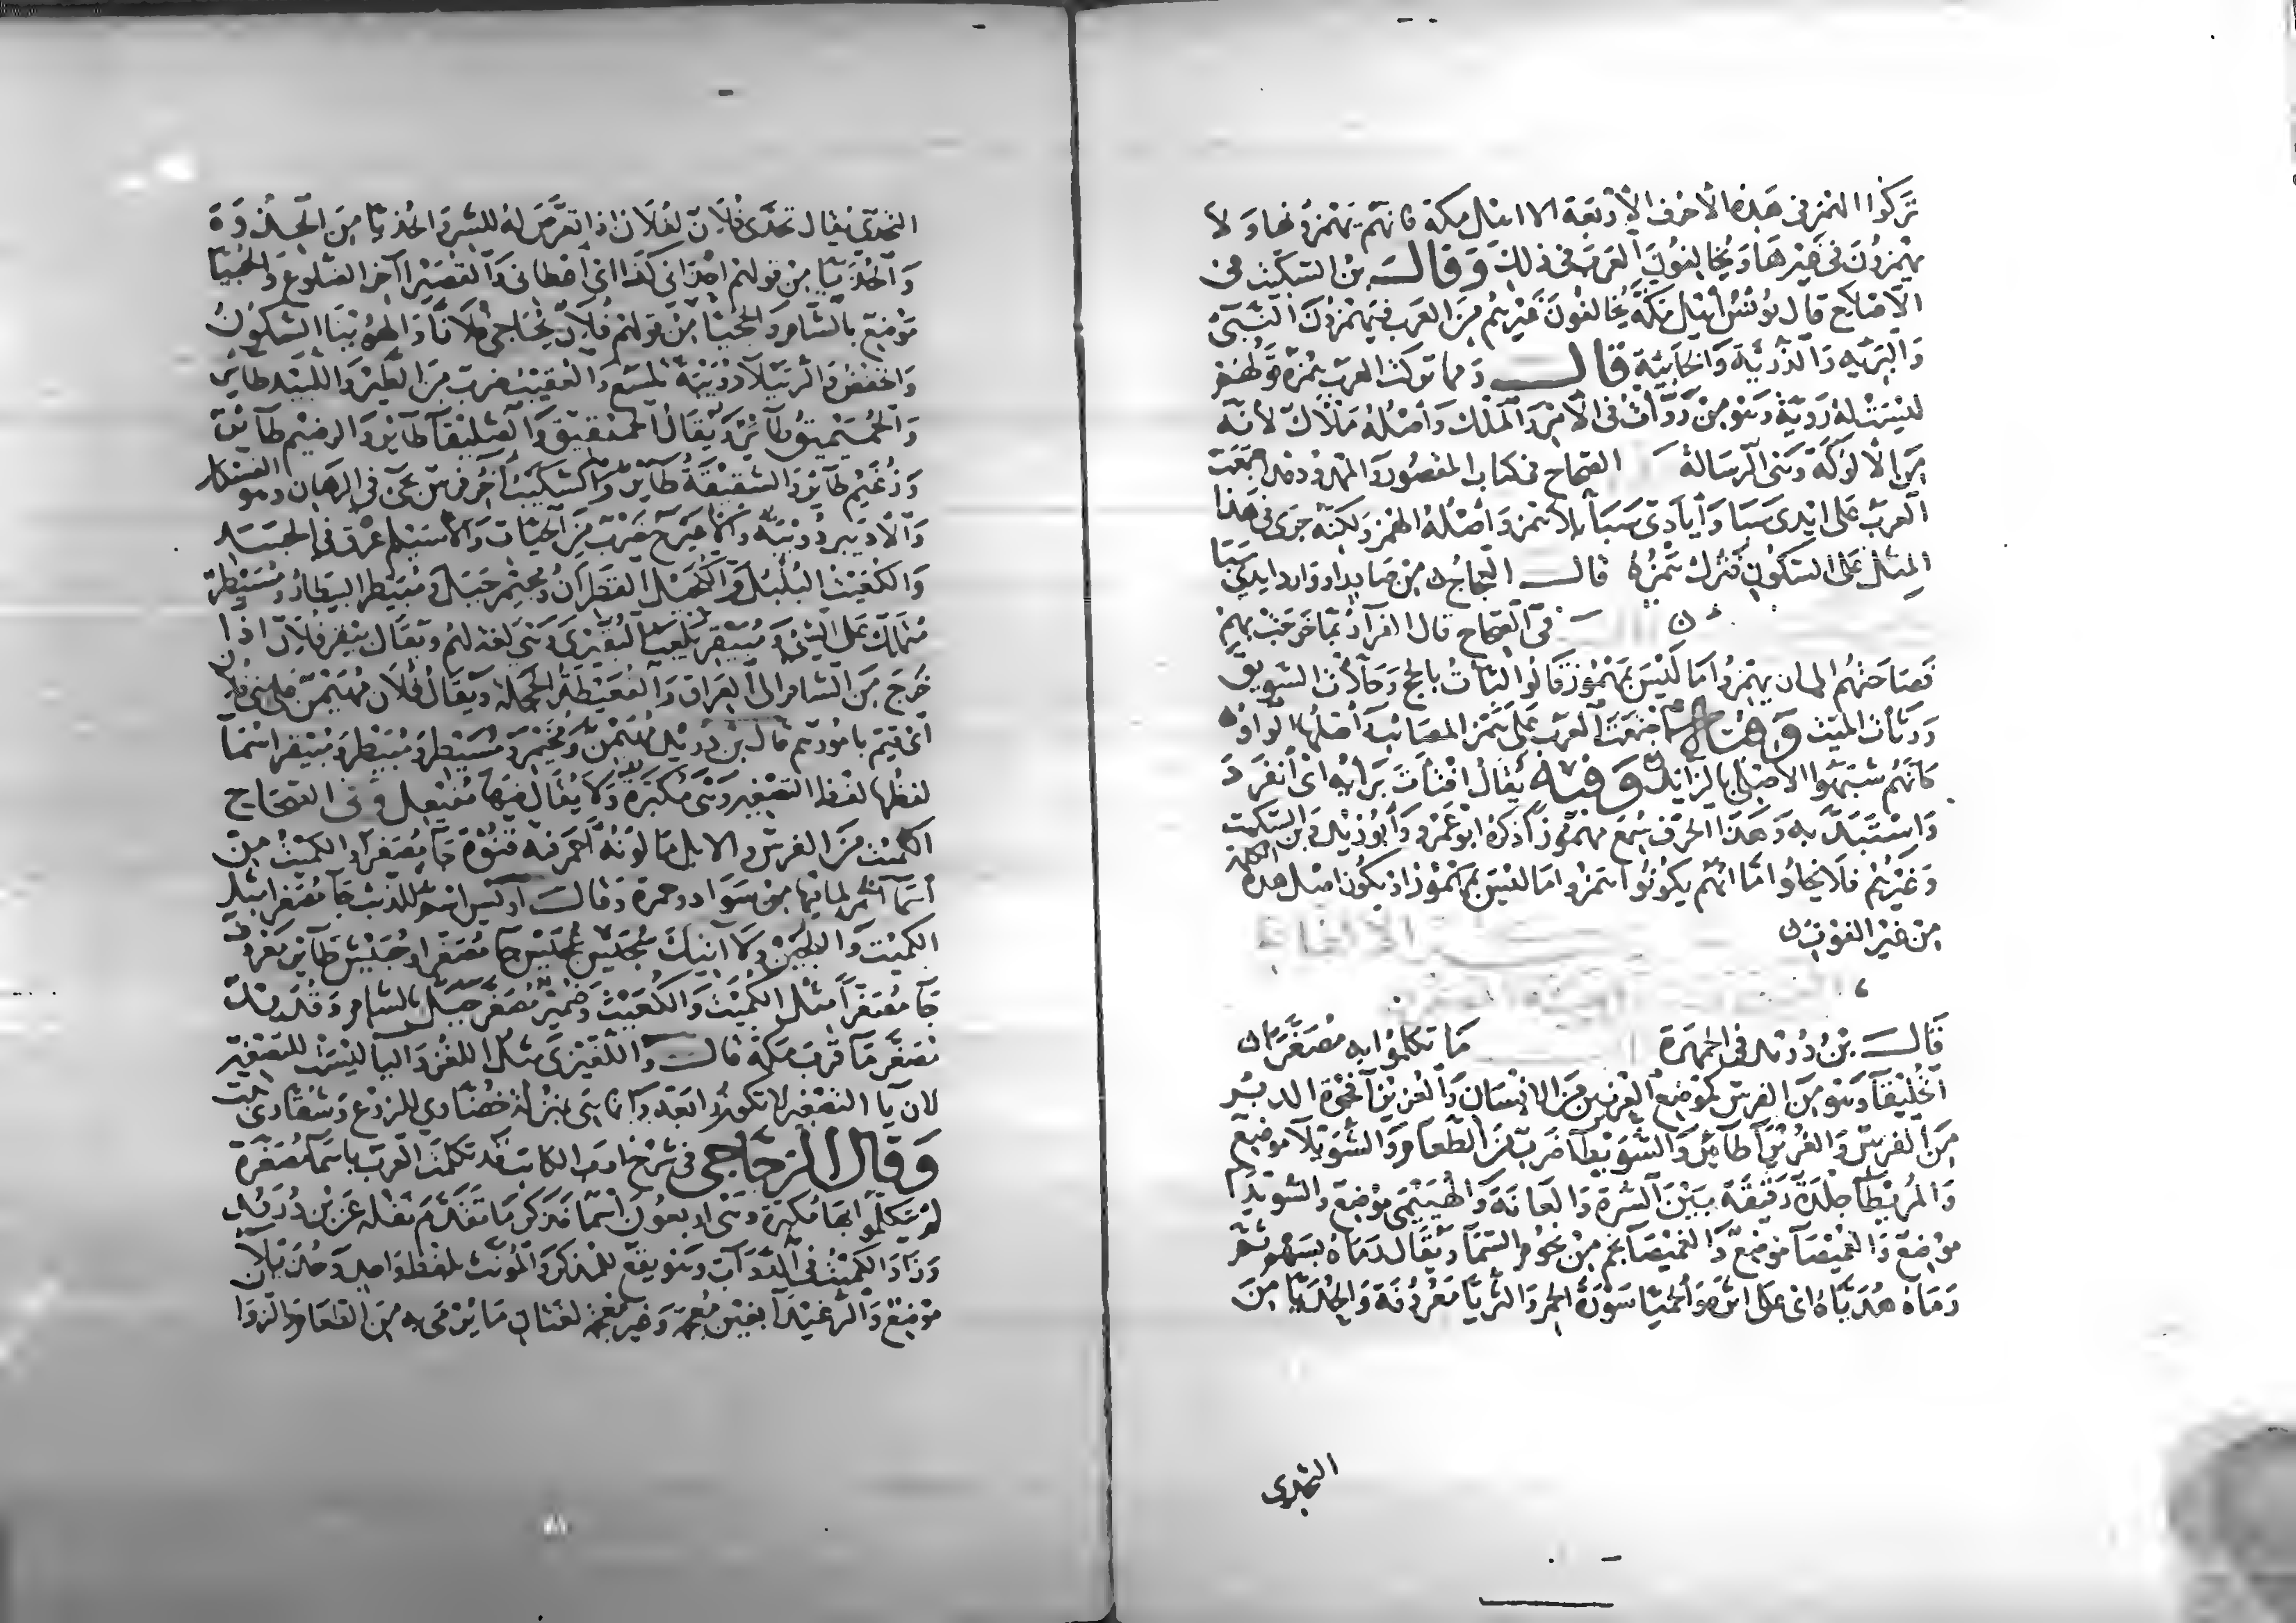 تركوا الهمز في هذه الأحرف الأربعة إلا أهل مكة فإنهم يهمزونها ولا
يهمزون في غيرها ويخالفون العرب في ذلك وقال بن السكيت في
الاصلاح قال يونس أهل مكة يخالفون غيرهم من العرب فيهمزون النبيء
والبريه والذرية والخابية قال ومما تركت العرب همزه قولهم
ليست له روية وهو من روأت في الأمر والملك وأصله ملاك لأنه
من الألوكة وهي الرسالة الصحاح في كتاب المقصور والممدود قد اجتمعت
العرب على ايدي سبا وأيادي سبا بلا همز وأصله الهمز ولكنه جرى في هذا
المثل على السكون فترك همزه قال العجاج من صادر او وارد ايدي سبا
في الصحاح قال الفرآء ربما خرجت بهم
فصاحتهم الى ان يهمزوا ما ليس بمهموز قالوا لبأت بالحج وحلأت السويق
ورثأت الميت وفي اجتمعت العرب على همز المصائب وأصلها الواو
كأنهم شبهوا الأصلي بالزايد وفيه يقال افتأت برأيه اي انفرد
واستبد به وهذا الحرف سمع مهموزا ذكره ابو عمرو وأبو زيد وبن السكيت
وغيرهم فلا يخلوا اما انهم يكونوا همزوا ما ليس بمهموز او يكون اصل هذه الكلمة
من غير الفوت
قال بن دريد في الجمهرة ما تكلموا به مصغرا
الخليقآ وهو من الفرس كموضع العرنين من الانسان والعزيزآ فجوة الدبر
من الفرس والغريرآ طآير والسويطآ ضرب من الطعام والشويلآ موضع
والمريطآ جلدة رقيقة بين السرة والعانة والهييما موضع والسويدآ
موضع والغميصآ موضع والغميصآ نجم من نجوم السمآ ويقال رماه بسهم ثم
رماه هدياه اي على اثره والحميا سورة الخمر والثريا معروفة والحديا من
التحدي
التحدي يقال تحدى فلان لفلان اذا تعرض له للشر والجذيا من الجذوة
والحذيا من قولهم احذاني كذا اي اعطاني والقصيرا آخر الضلوع والحبيا
موضع بالشام والحجيا من قولهم فلان يحاجي فلانا والهوينا السكون
والخفض والرتيلآ دويبة تلسع والعقيب ضرب من الطير واللبيد طاير
والحميميق طآير ويقال الحمقيق والصليقآ طآير والرضيم طآير
وزغيم طآير والشقيقة طآير والسكيت آخر فرس يجي في الرهان وهو الفسكل
والأديبر دويبة والأعيرج ضرب من الحيات والأسيلم عرق في الجسد
والكعيت البلبل والكحيل القطران ومجيمر جبل ومبيطر البيطار ومسيطر
متملك على الشي ومبيقر يلعب البقيرى وهي لعبة لهم ويقال بيقر فلان اذا
خرج من الشام الى العراق والقعيطة الحجلة ويقال فلان مهيمن على بني فلان
اي قيم بامورهم قال بن دريد مهيمن ومخيمر ومسيطر ومبيطر ومبيقر اسمآ
لفظها لفظ التصغير وهي مكبرة ولا يقال فيها مفيعل وفي الصحاح
الكميت من الفرس والابل ما لونه احمر فيه قنوة جآ مصغرا والكميت من
اسمآ الخمر لما فيها من سواد وحمرة وقال اوكيس اسم للذئب جآ مصغرا مثل
الكميت واللجين ولا آتيك سجيس عجيس جآ مصغرا وحبيش طآير معروف
جآ مصغرا مثل الكميت والكعيت وضمير مصغر جبل بالشام وقديد
مصغر مآ قرب مكة قال واللغيزى مثل اللغز واليا ليست للتصغير
لان يا التصغير لا تكون رابعة وانما هي بمنزلة خضارى للزرع وشقارى نبت
وقال الزجاجي في شرح ادب الكاتب قد تكلمت العرب باسمآ مصغرة
لم يتكلموا بها مكبرة وهي اربعون اسما فذكر ما تقدم نقله عن بن دريد
وزاد الكميت في الدوآب وهو يقع للمذكر والمؤنث بلفظ واحد وحديلآ
موضع والرغيدآ بغين معجمة وغير معجمة لغتان ما يرمى به من الطعام والزوا